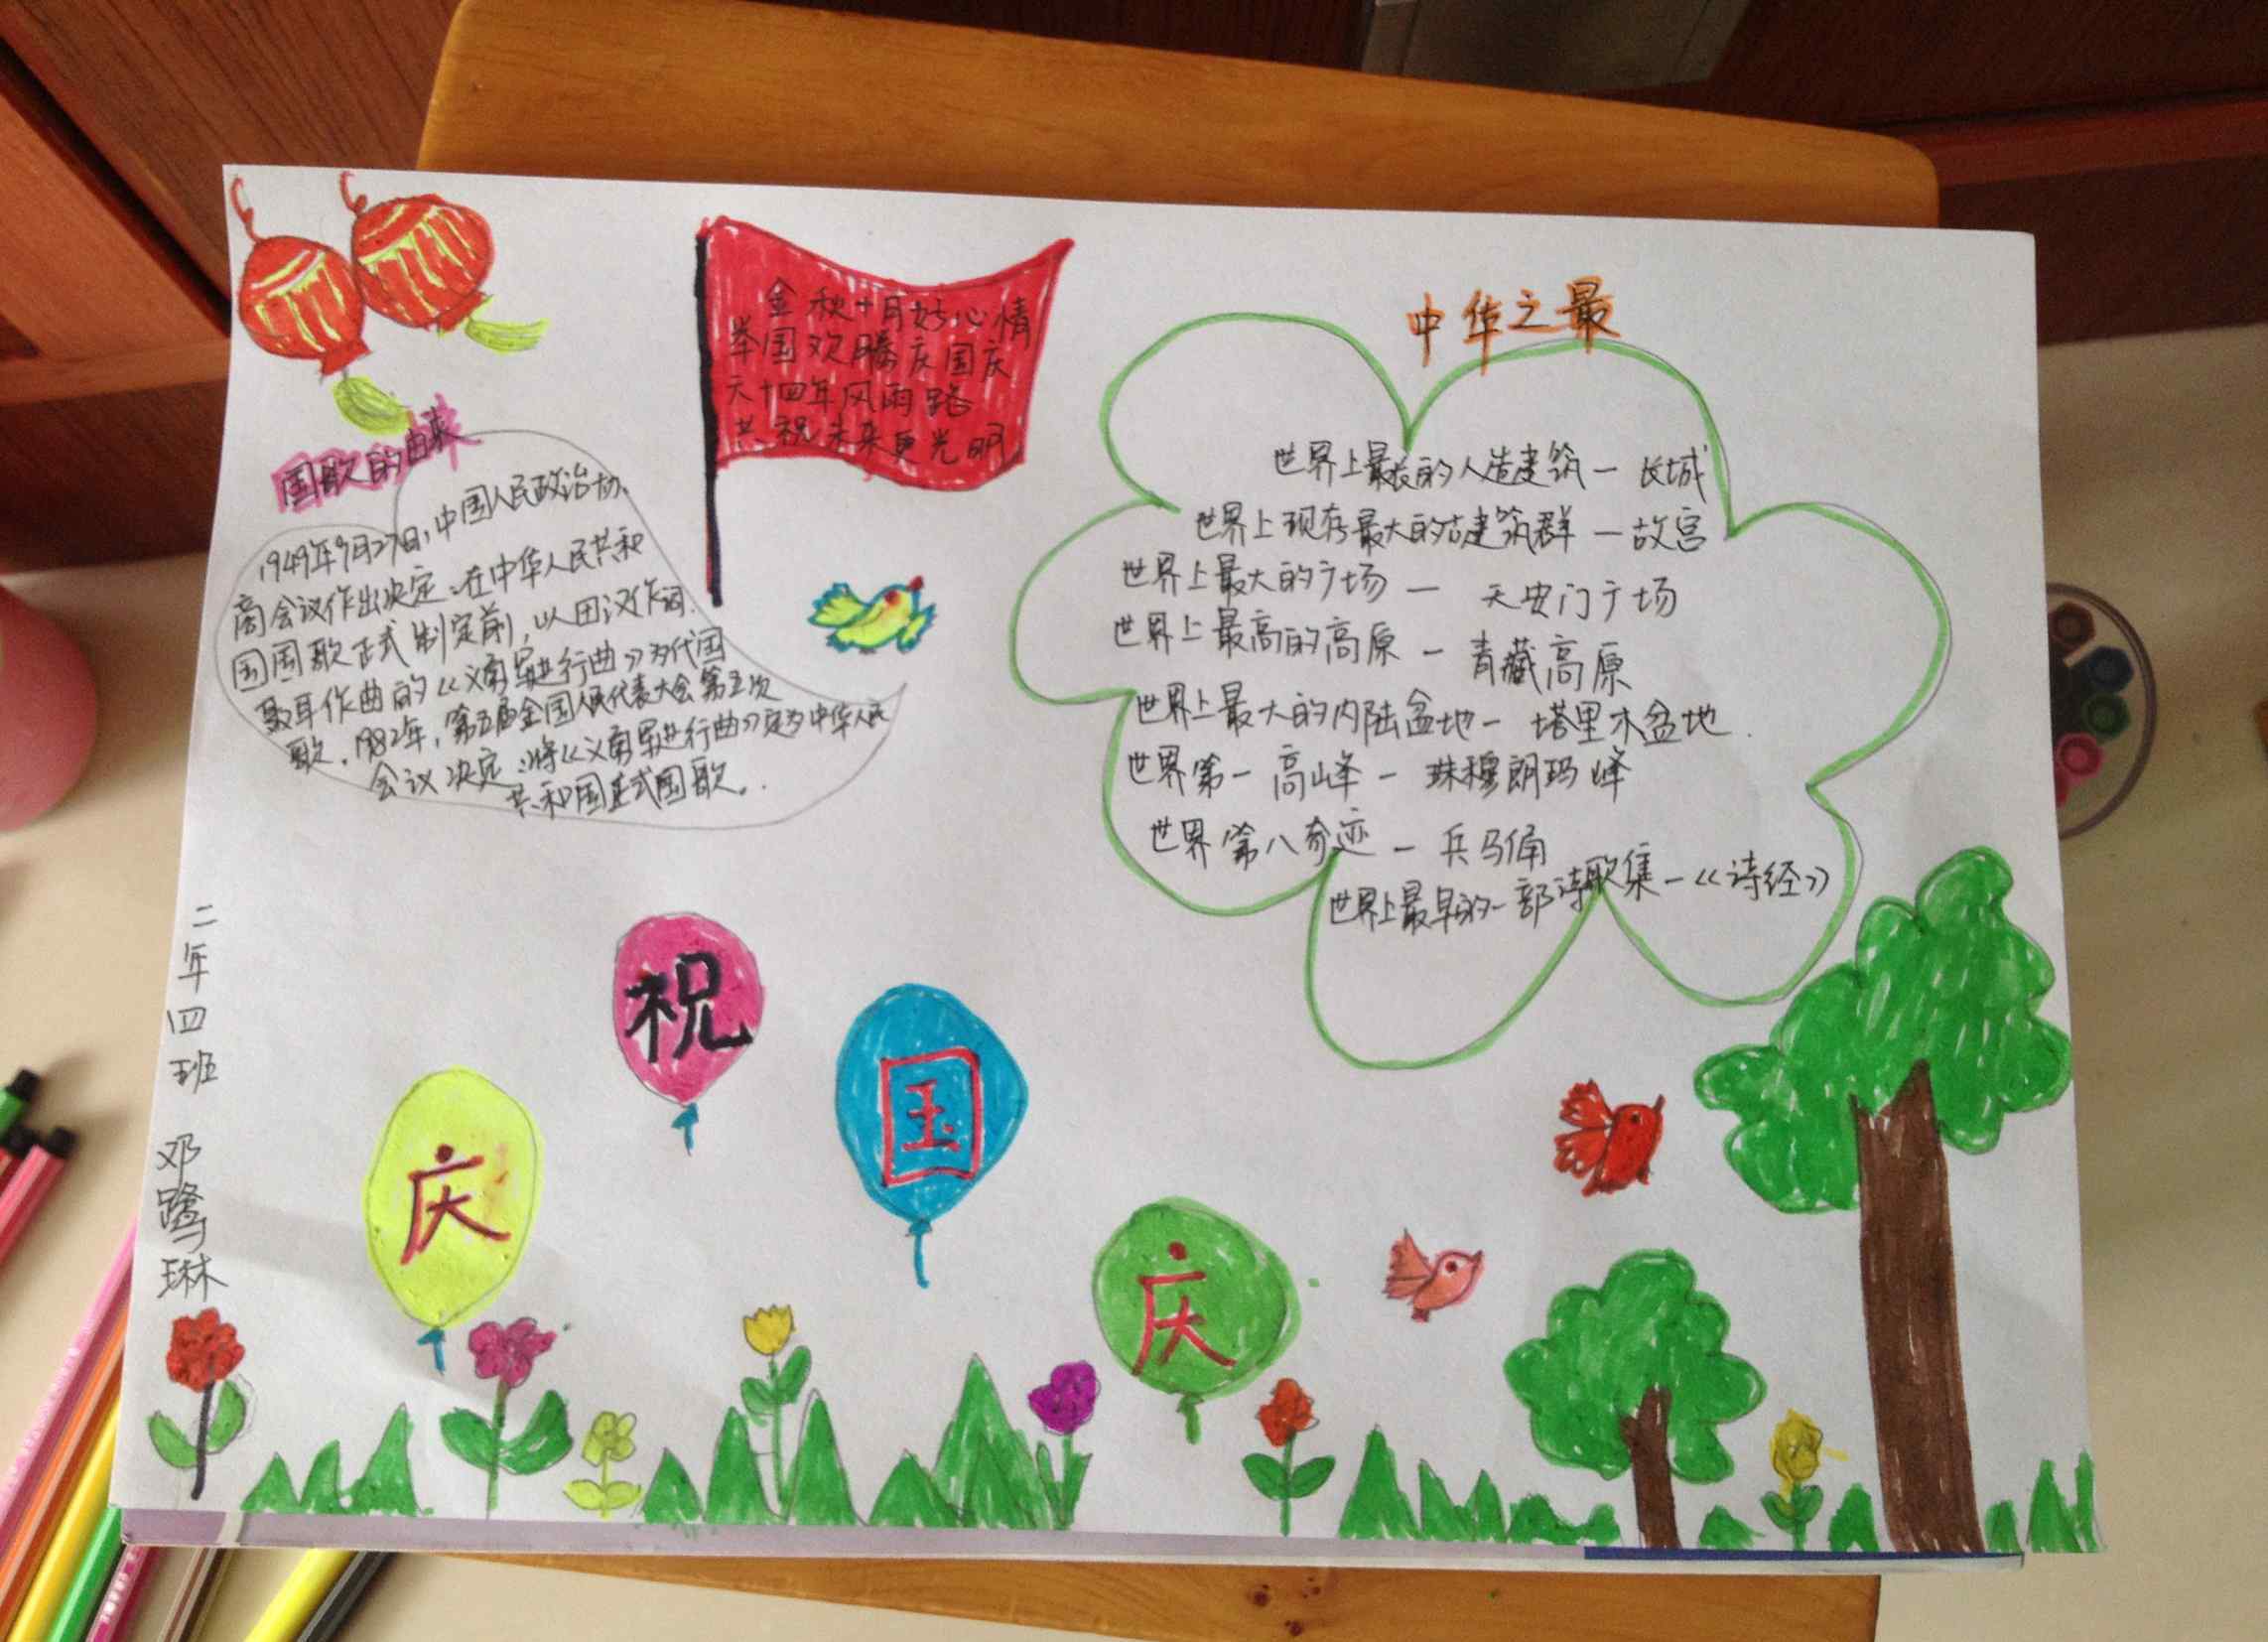 国歌的由来
1949年9月27日,中国人民政治协
商会议作出决定:在中华人民共和
国国歌正式制定前,以田汉作词、
聂耳作曲的《义勇军进行曲》为代国
歌。1982年,第五届全国人民代表大会第五次
会议决定:将《义勇军进行曲》定为中华人民
共和国正式国歌。
金秋十月好心情
举国欢腾庆国庆
六十四年风雨路
共祝未来更光明
中华之最
世界上最长的人造建筑一长城
世界上现存最大的古建筑群一故宫
世界上最大的广场一天安门广场
世界上最高的高原一青藏高原
世界上最大的内陆盆地一塔里木盆地.
世界第一高峰一珠穆朗玛峰
世界第八奇迹一兵马俑
世界上最早的一部诗歌集一《诗经》
二年四班 邓鹭琳
庆
祝
国
庆